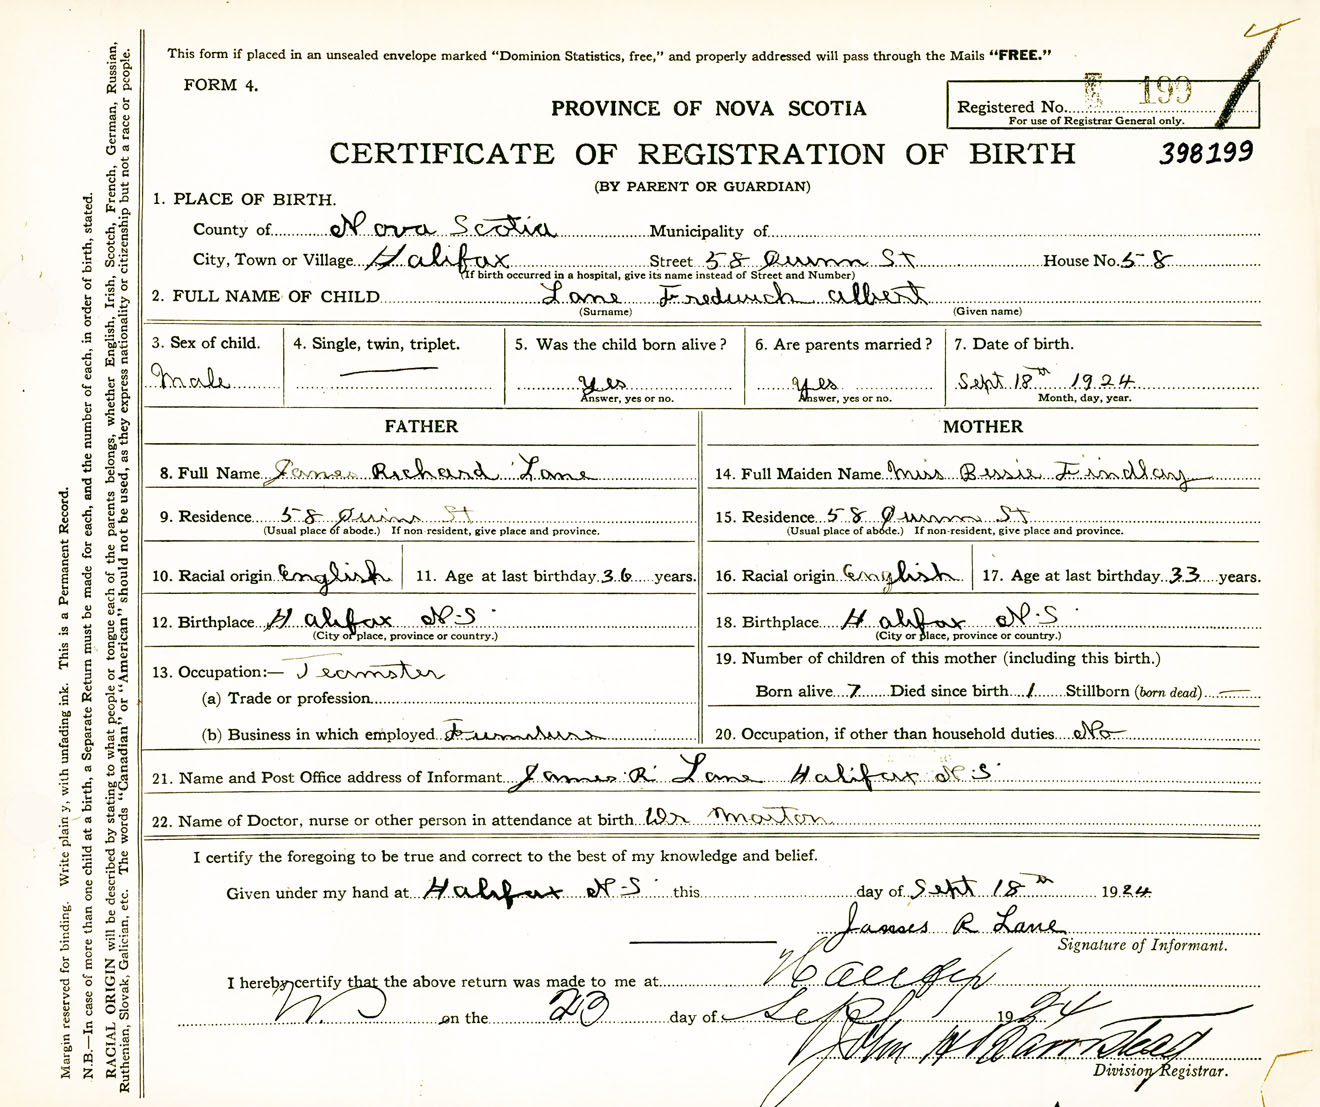 This form if placed in an unsealed envelope marked "Dominion Statistics, free," and properly addressed will pass through the Mails "FREE."
FORM 4.
Registered No. 199
For use of Registrar General only.
PROVINCE OF NOVA SCOTIA
CERTIFICATE OF REGISTRATION OF BIRTH
398199
(BY PARENT OR GUARDIAN)
1. PLACE OF BIRTH.
County of Nova Scotia Municipality of
City, Town or Village Halifax Street 58 St House No. 58
(If birth occurred in a hospital, give its name instead of Street and Number)
2. FULL NAME OF CHILD Lane Fredrick Albert
(Surname) (Given name)
3. Sex of child. 4. Single, twin, triplet. 5. Was the child born alive? 6. Are parents married? 7. Date of birth.
Male yes yes Sept 18th 1924
Answer, yes or no. Answer, yes or no. Month, day, year.
FATHER MOTHER
8. Full Name James Richard Lane 14. Full Maiden Name Miss Bessie Findlay
9. Residence 58 St 15. Residence 58 St
(Usual place of abode.) If non-resident, give place and province. (Usual place of abode.) If non-resident, give place and province.
10. Racial origin English 11. Age at last birthday 36 years. 16. Racial origin English 17. Age at last birthday 33 years.
12. Birthplace Halifax N.S. 18. Birthplace Halifax N.S.
(City or place, province or country.) (City or place, province or country.)
13. Occupation:— Teamster 19. Number of children of this mother (including this birth.)
(a) Trade or profession Born alive 7 Died since birth 1 Stillborn (born dead) —
(b) Business in which employed Furniture 20. Occupation, if other than household duties No
21. Name and Post Office address of Informant James R Lane Halifax N.S.
22. Name of Doctor, nurse or other person in attendance at birth Dr Morton
I certify the foregoing to be true and correct to the best of my knowledge and belief.
Given under my hand at Halifax N.S. this day of Sept 18th 1924
James R Lane
Signature of Informant.
I hereby certify that the above return was made to me at Halifax
on the 23 day of Sept 1924
John H Barnstead
Division Registrar.
Margin reserved for binding. Write plainly, with unfading ink. This is a Permanent Record.
N.B.—In case of more than one child at a birth, a Separate Return must be made for each, and the number of each, in order of birth, stated.
RACIAL ORIGIN will be described by stating to what people or tongue each of the parents belongs, whether English, Irish, Scotch, French, German, Russian,
Ruthenian, Slovak, Galician, etc. The words "Canadian" or "American" should not be used, as they express nationality or citizenship but not a race or people.